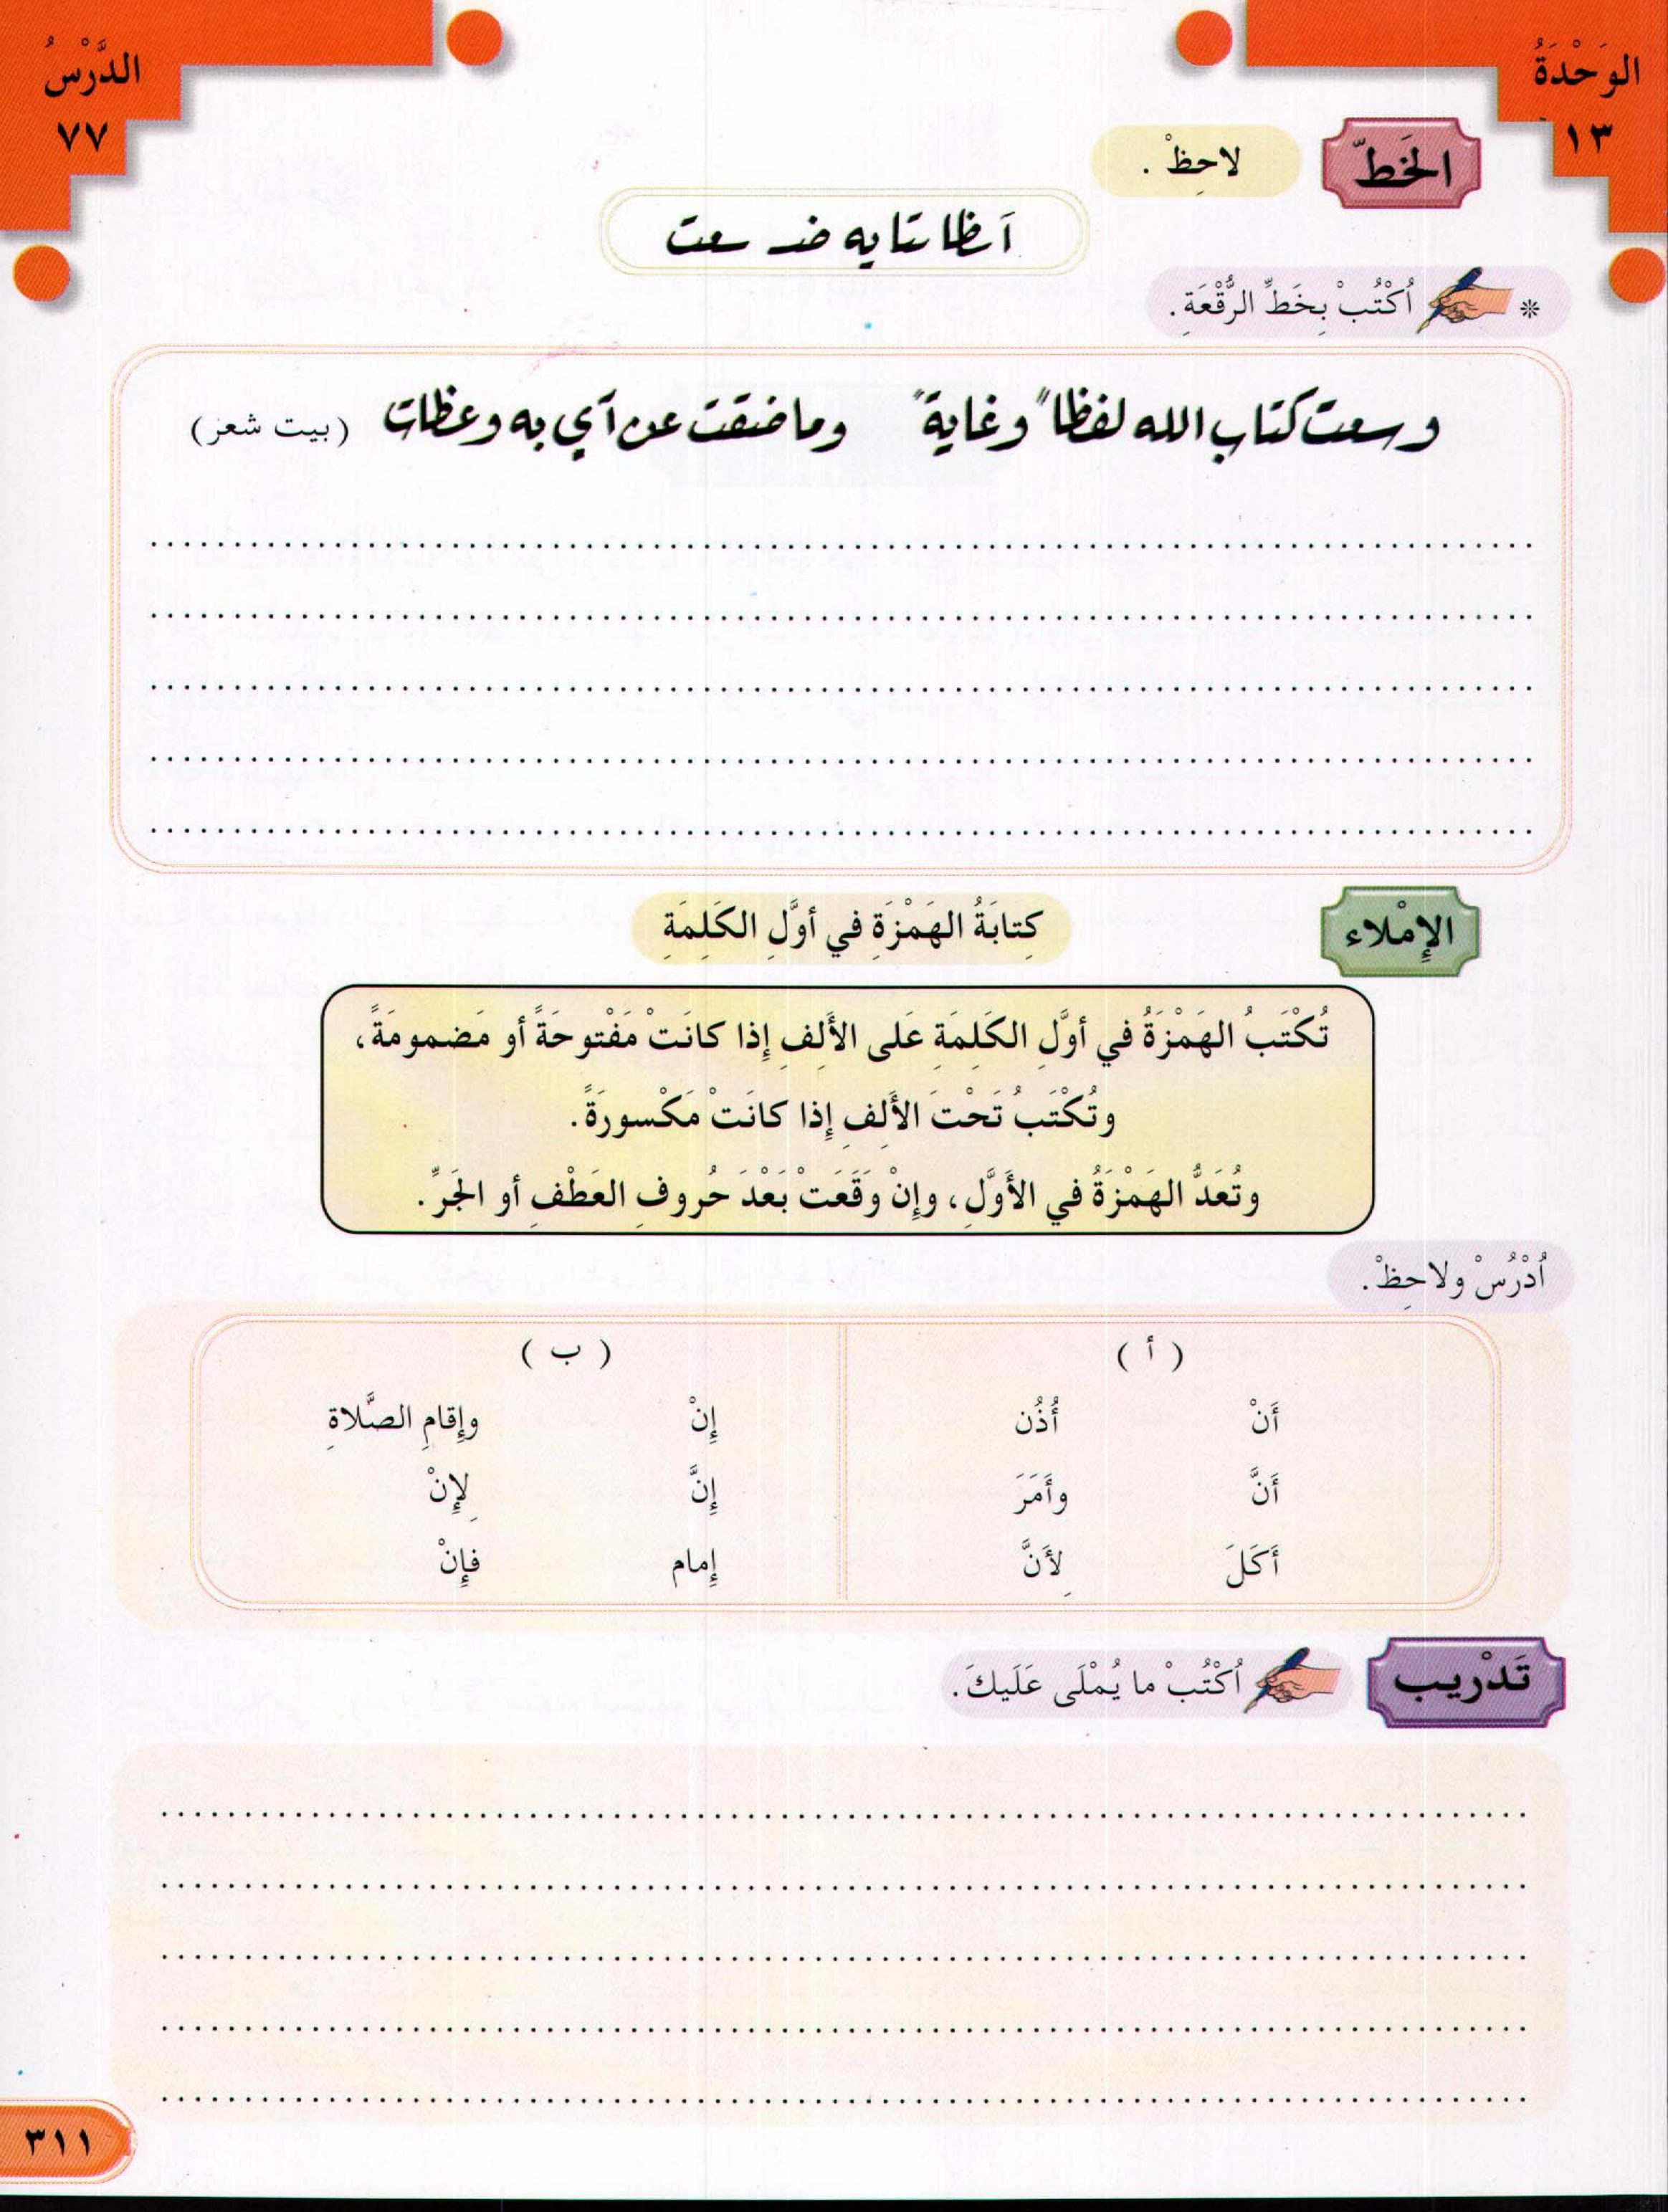 الوَحْدَةُ
١٣
الدَّرْسُ
٧٧
الخَطّ
لاحِظْ .
آ ظا تا يه ضد سعت
* اُكْتُبْ بِخَطِّ الرُّقْعَةِ.
وسعت كتاب الله لفظاً وغايةً وما ضقت عن آي به وعظات (بيت شعر)
الإِمْلاء
كِتابَةُ الهَمْزَةِ في أوَّلِ الكَلِمَةِ
تُكْتَبُ الهَمْزَةُ في أوَّلِ الكَلِمَةِ عَلى الأَلِفِ إِذا كانَتْ مَفْتوحَةً أو مَضمومَةً،
وتُكْتَبُ تَحْتَ الأَلِفِ إِذا كانَتْ مَكْسورَةً.
وتُعَدُّ الهَمْزَةُ في الأَوَّلِ، وإِنْ وَقَعَتْ بَعْدَ حُروفِ العَطْفِ أو الجَرِّ.
اُدْرُسْ ولاحِظْ.
( أ ) ( ب )
أَنْ أُذُن إِنْ وإِقامِ الصَّلاةِ
أَنَّ وأَمَرَ إِنَّ لِإِنْ
أَكَلَ لِأَنَّ إِمام فإِنْ
تَدْريب
اُكْتُبْ ما يُمْلَى عَلَيكَ.
٣١١